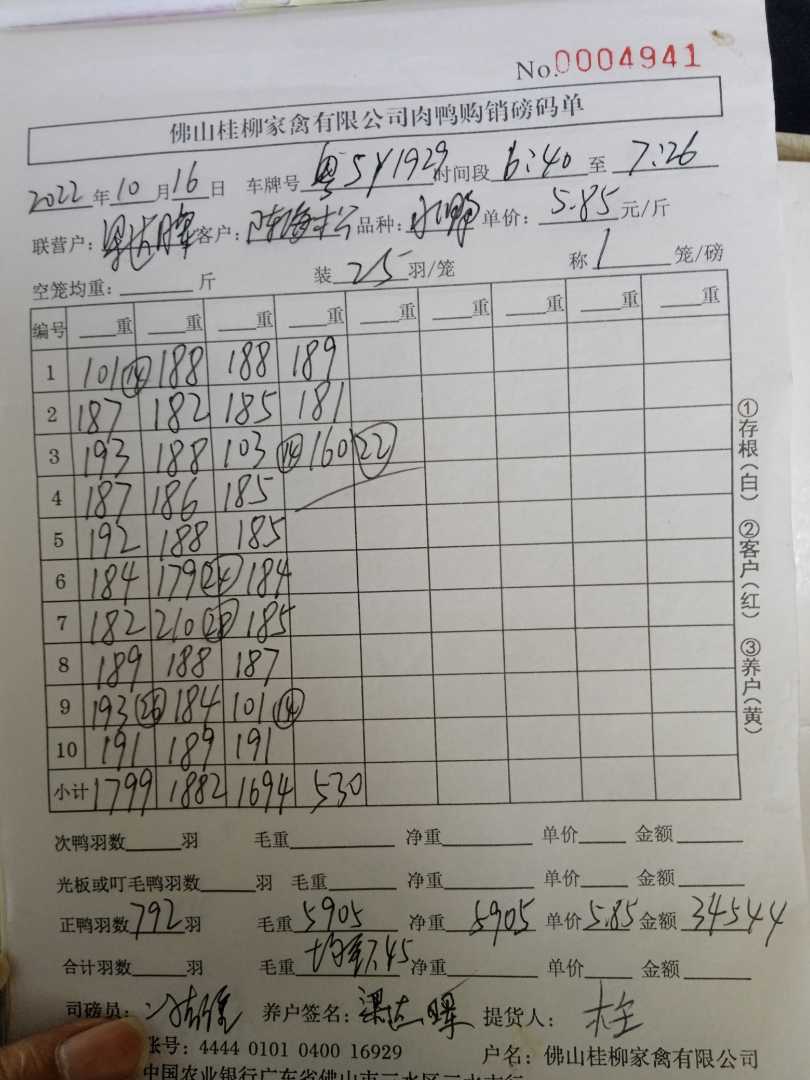 No.0004941
佛山桂柳家禽有限公司肉鸭购销磅码单
2022年10月16日 车牌号粤SY1929时间段6:40至7:26
联营户：梁达晖客户：品种：单价：5.85元/斤
空笼均重：斤 装25羽/笼 称1笼/磅
编号 重 重 重 重 重 重 重 重 重
1 101 (14) 188 188 189
2 187 182 185 181
3 193 188 103 (14) 160 (22)
4 187 186 185
5 192 188 185
6 184 179 (24) 184
7 182 210 (28) 185
8 189 188 187
9 193 (26) 184 101 (14)
10 191 189 191
小计 1799 1882 1694 530
①存根(白) ②客户(红) ③养户(黄)
次鸭羽数羽 毛重 净重 单价 金额
光板或叮毛鸭羽数羽 毛重 净重 单价 金额
正鸭羽数792羽 毛重5905 净重5905 单价5.85 金额34544
合计羽数羽 毛重均重7.45 净重 单价 金额
司磅员： 养户签名：梁达晖 提货人：
账号：4444 0101 0400 16929 户名：佛山桂柳家禽有限公司
中国农业银行广东省佛山市三水区三水支行